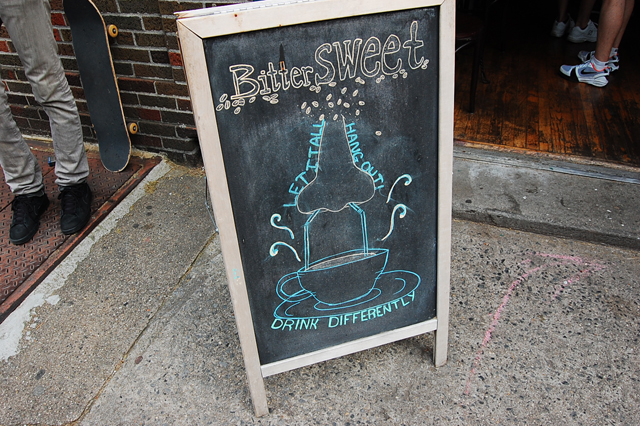 BitterSWEET
LET IT ALL
HANG OUT!
DRINK DIFFERENTLY